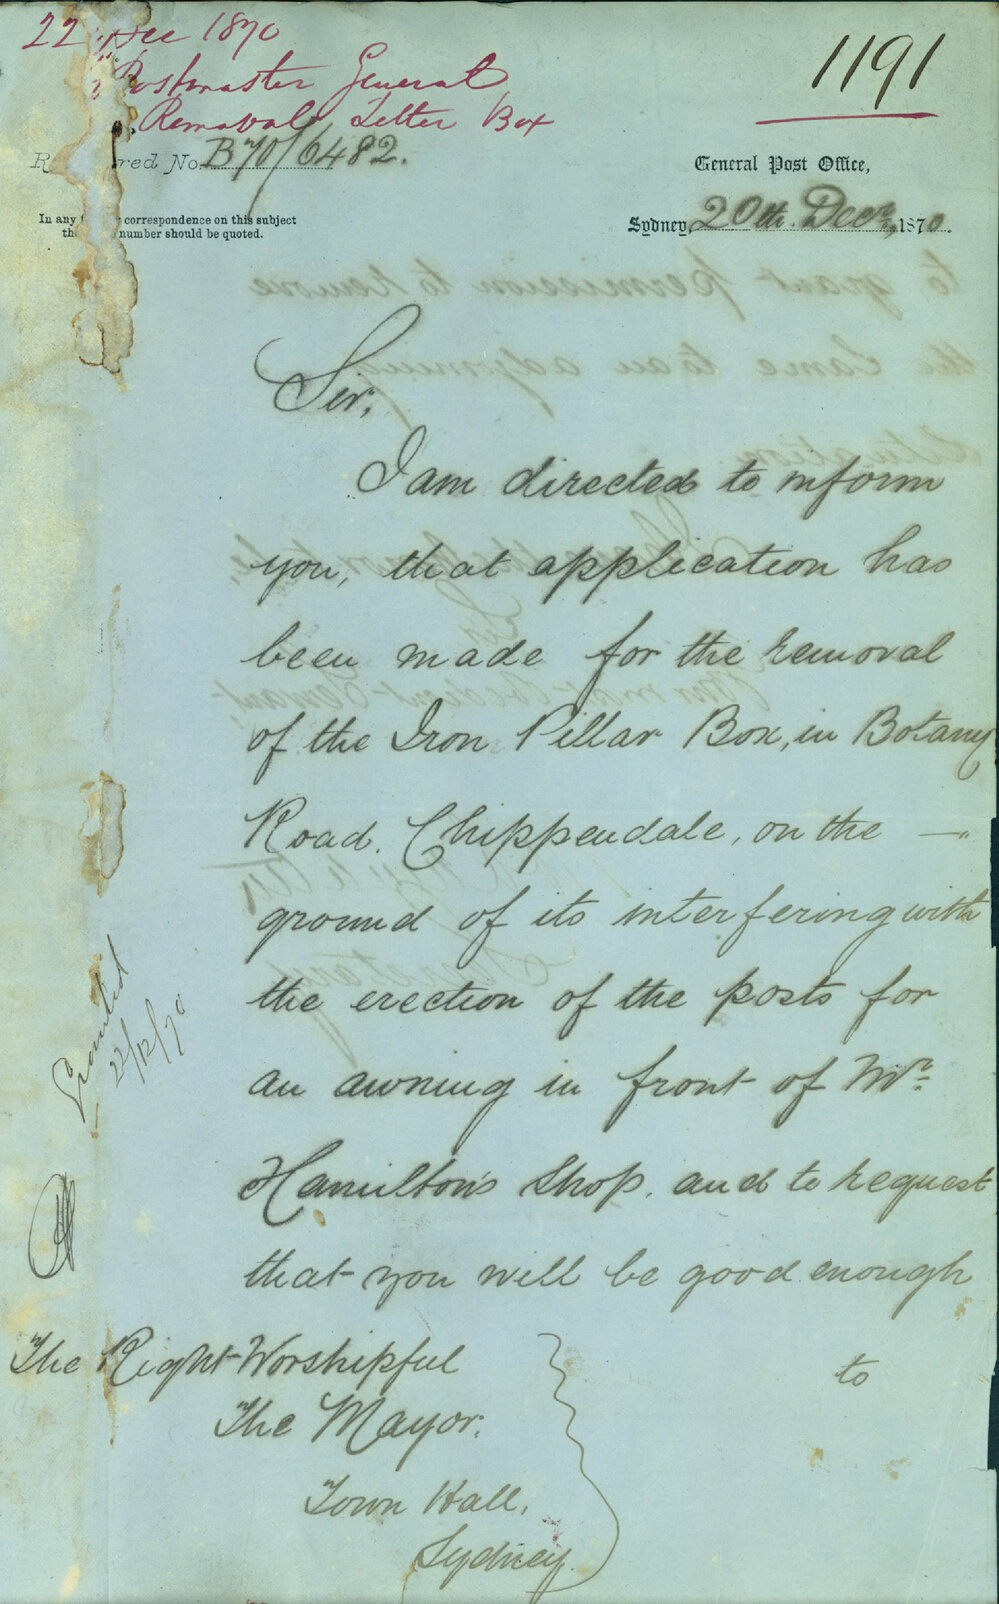 22 Dec 1870
Postmaster General
Removal Letter Box
1191
No. B70/6482.
General Post Office,
Sydney, 20th Decr, 1870.
In any correspondence on this subject
number should be quoted.
Sir,
I am directed to inform
you, that application has
been made for the removal
of the Iron Pillar Box, in Botany
Road, Chippendale, on the —
ground of its interfering with
the erection of the posts for
an awning in front of Mr.
Hamilton's Shop, and to request
that you will be good enough
to
Granted
22/12/70
The Right Worshipful
The Mayor.
Town Hall,
Sydney